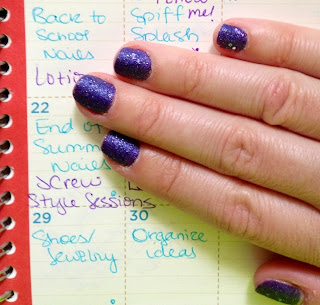 Back to
School
Nails
Lotio
Spiff me!
Splash
22
End of
Summ
Nails
Screw
Style Sessions
29
Shoes/
Jewelry
30
Organize
ideas